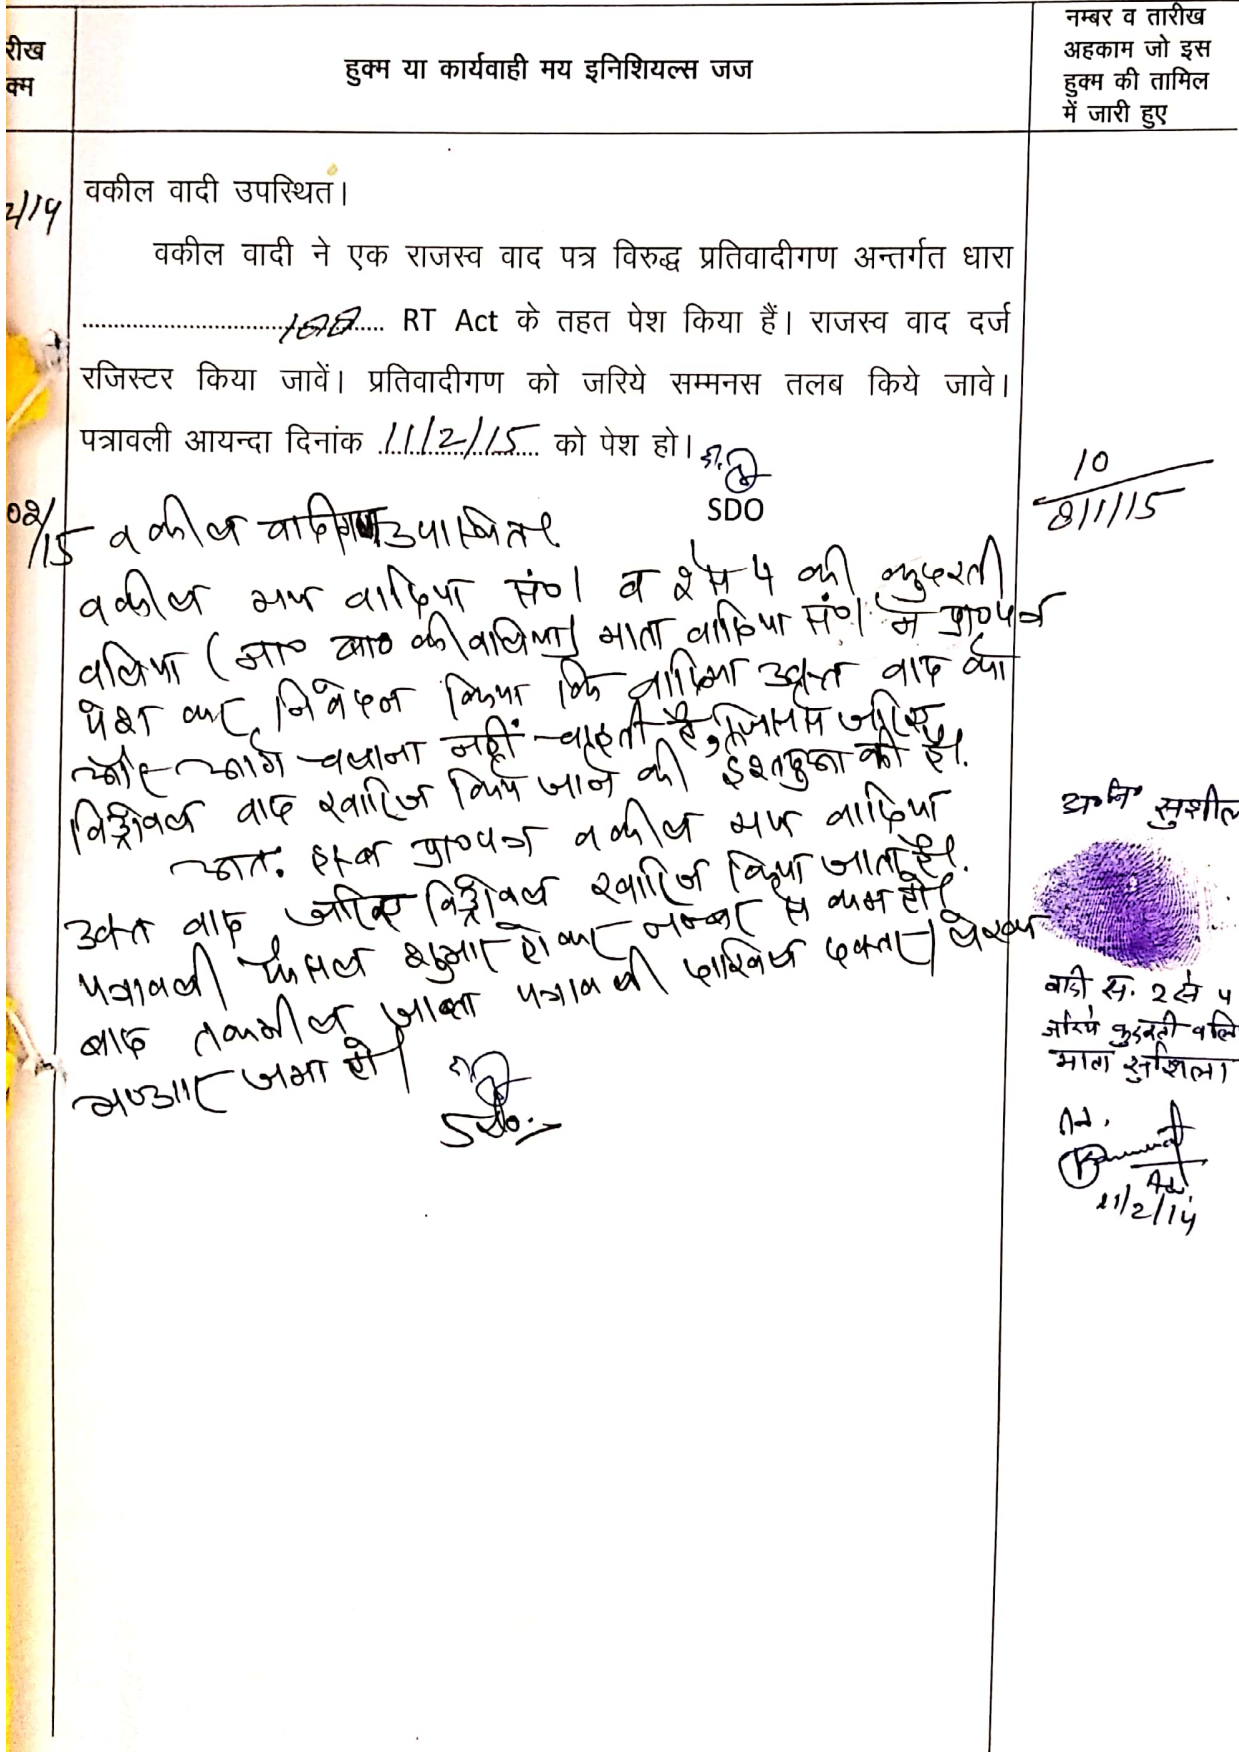 रीख
क्म
हुक्म या कार्यवाही मय इनिशियल्स जज
नम्बर व तारीख
अहकाम जो इस
हुक्म की तामिल
में जारी हुए
वकील वादी उपस्थित।
वकील वादी ने एक राजस्व वाद पत्र विरुद्ध प्रतिवादीगण अन्तर्गत धारा
RT Act के तहत पेश किया हैं। राजस्व वाद दर्ज
रजिस्टर किया जावें। प्रतिवादीगण को जरिये सम्मनस तलब किये जावे।
पत्रावली आयन्दा दिनांक 11/2/15 को पेश हो।
SDO
10
8/1/15
वकील वादीगण उपस्थित।
वकील मय वादिया सं० 1 व 2 से 4 की कुदरती
वलिया माता वादिया सं० 1 ने प्रा०पत्र
पेश कर निवेदन किया कि वादिया उक्त वाद को
और आगे चलाना नहीं चाहती है, जरिए
विड्रोवल वाद खारिज किये जाने की इस्तदुआ की है।
अतः प्रा०पत्र वकील मय वादिया
उक्त वाद जरिए विड्रोवल खारिज किया जाता है।
पत्रावली फैसल शुमार होकर नम्बर से कम हो।
बाद तकमील जाब्ता पत्रावली दाखिल दफ्तर
भण्डार जमा हो।
SDO
अ०नि० सुशील
वादी सं. 2 से 4
जरिये कुदरती वलि
माता सुशिला
Adv
11/2/14